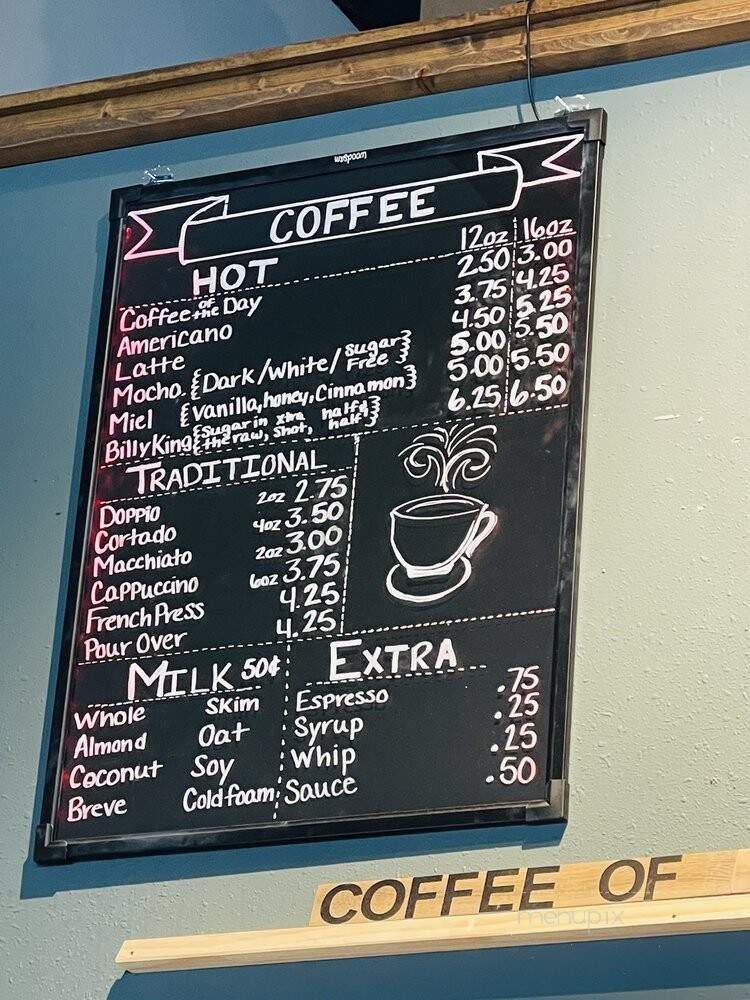 waspoom
COFFEE
HOT 12oz 16oz
Coffee of the Day 2.50 3.00
Americano 3.75 4.25
Latte 4.50 5.25
Mocha {Dark/White/Sugar Free} 5.00 5.50
Miel {Vanilla, honey, Cinnamon} 5.00 5.50
Billy King {Sugar in the raw, xtra shot, half & half} 6.25 6.50
TRADITIONAL
Doppio 2oz 2.75
Cortado 4oz 3.50
Macchiato 2oz 3.00
Cappuccino 6oz 3.75
French Press 4.25
Pour Over 4.25
MILK 50¢
Whole Skim
Almond Oat
Coconut Soy
Breve Coldfoam
EXTRA
Espresso .75
Syrup .25
Whip .25
Sauce .50
COFFEE OF
menupix